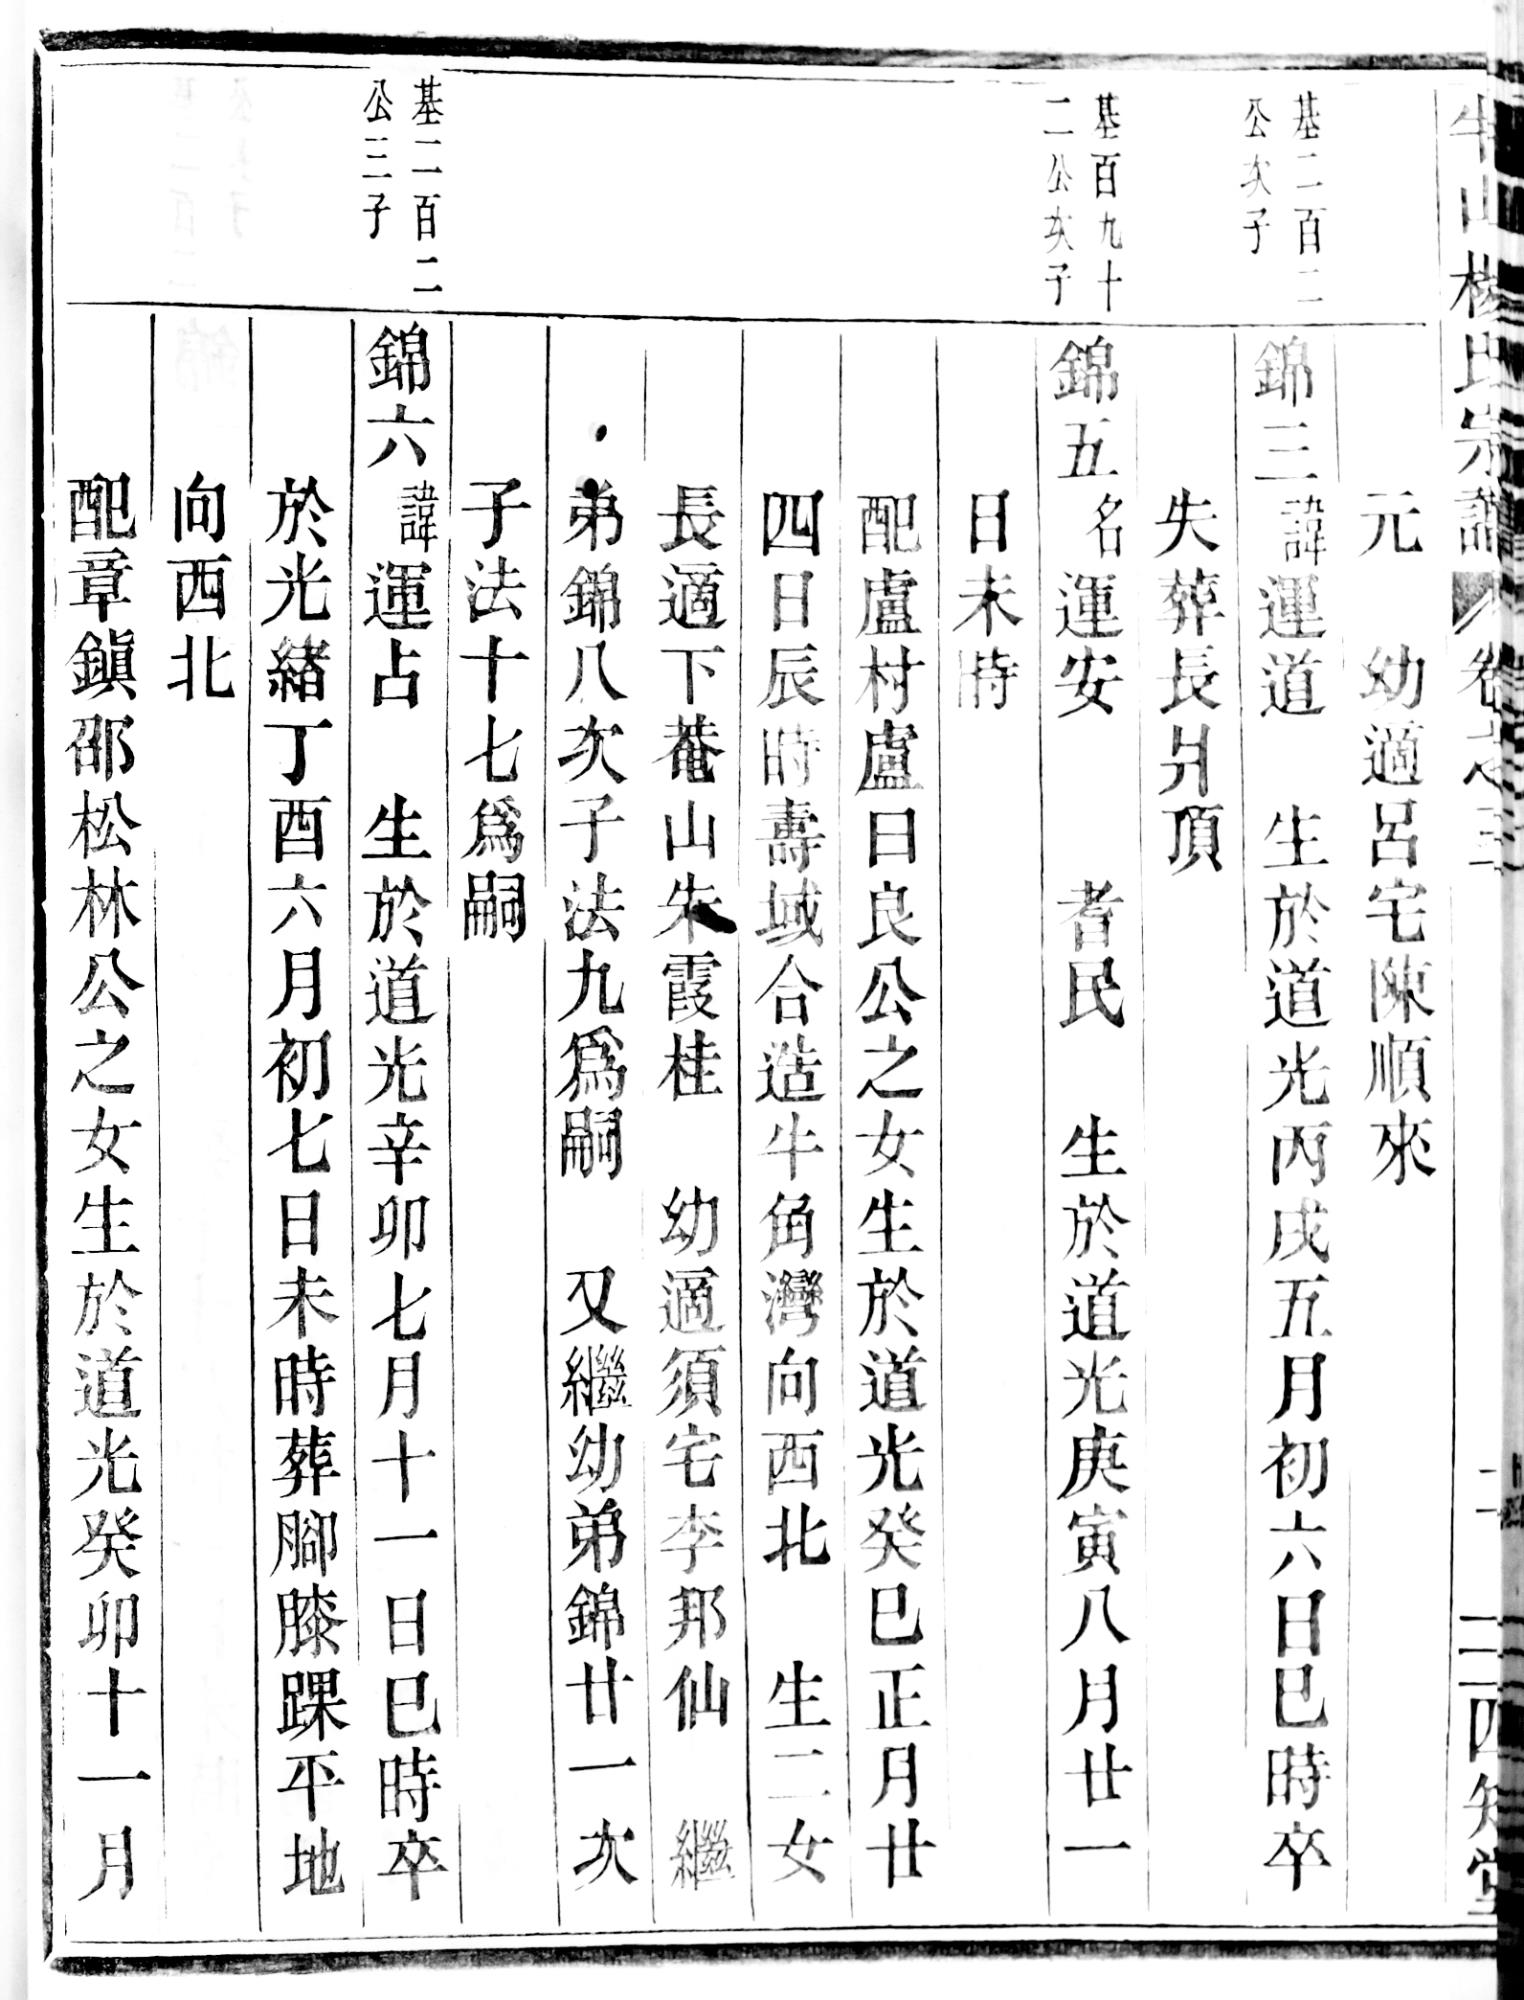 牛山楊氏宗譜 卷之三 二 四知堂
元 幼適呂宅陳順來
基二百二
公次子
錦三諱運道 生於道光丙戌五月初六日巳時卒
失葬長爿頂
基百九十
二公次子
錦五名運安 耆民 生於道光庚寅八月廿一
日未時
配盧村盧日良公之女生於道光癸巳正月廿
四日辰時壽域合造牛角灣向西北 生二女
長適下菴山朱霞桂 幼適須宅李邦仙 繼
弟錦八次子法九爲嗣 又繼幼弟錦廿一次
子法十七爲嗣
基二百二
公三子
錦六諱運占 生於道光辛卯七月十一日巳時卒
於光緒丁酉六月初七日未時葬腳膝踝平地
向西北
配章鎭邵松林公之女生於道光癸卯十一月